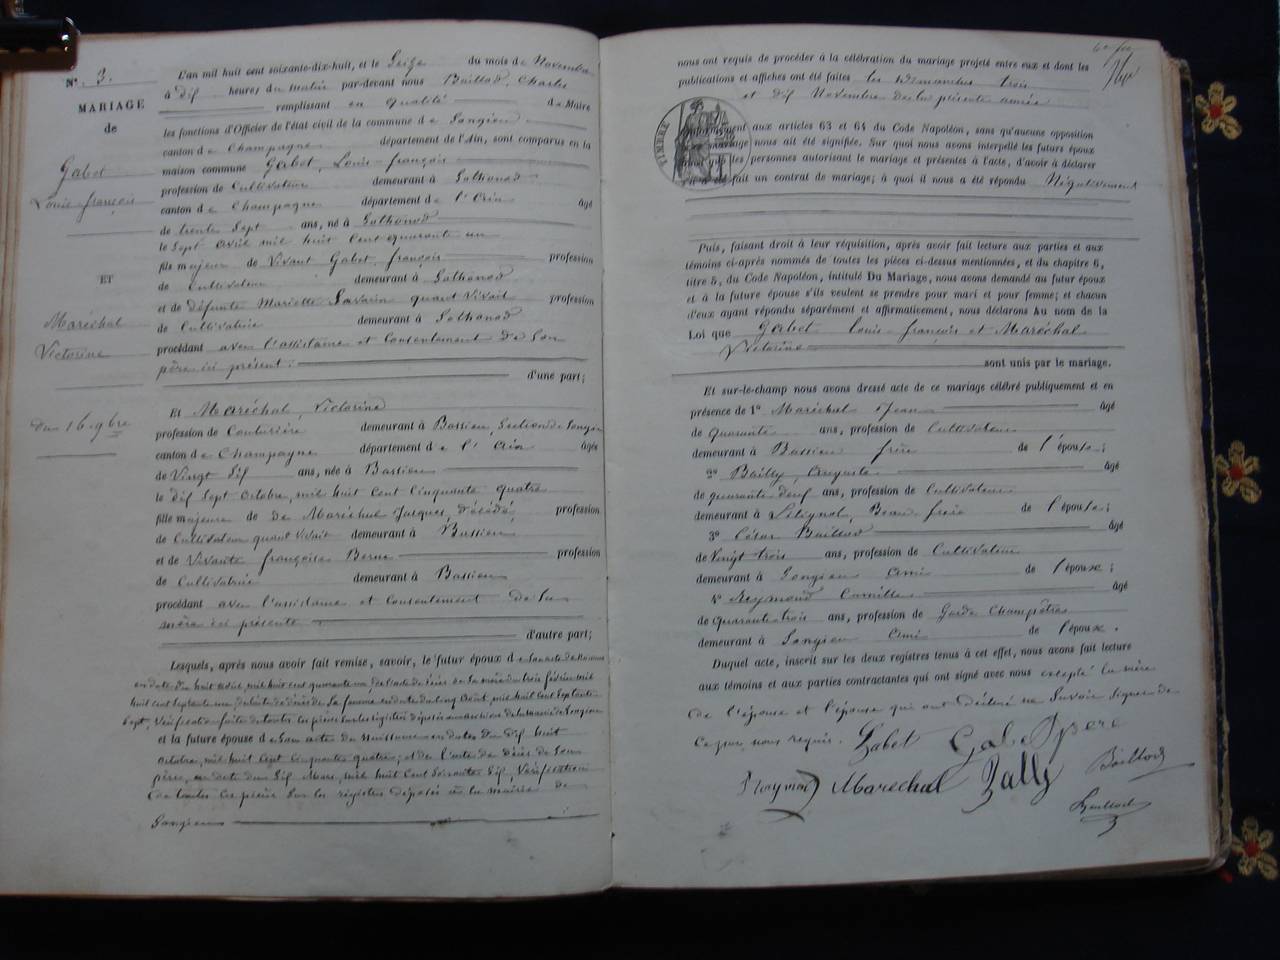 N° 3.
MARIAGE
de
Gabet
Louis françois
ET
Maréchal
Victorine
du 16 9bre
L'an mil huit cent soixante-dix-huit, et le Seize du mois de Novembre
à dix heures du matin par-devant nous Baillod, Charles
remplissant en qualité de Maire
les fonctions d'Officier de l'état civil de la commune de Songieu
canton de Champagne département de l'Ain, sont comparus en la
maison commune Gabet, Louis françois
profession de Cultivateur demeurant à Sothonod
canton de Champagne département de l'Ain âgé
de trente Sept ans, né à Sothonod
le Sept avril mil huit Cent quarante un
fils majeur de Vivant Gabet, françois profession
de Cultivateur demeurant à Sothonod
et de défunte Mariette Savarin quand Vivait profession
de Cultivatrice demeurant à Sothonod
procédant avec l'assistance et Consentement de Son
père ici présent :
d'une part;
Et Maréchal, Victorine
profession de Couturière demeurant à Bassieu, Section de Songieu
canton de Champagne département de l'Ain âgée
de Vingt Six ans, née à Bassieu
le dix Sept Octobre, mil huit Cent Cinquante quatre
fille majeure de de Maréchal Jacques, Décédé, profession
de Cultivateur quand Vivait demeurant à Bassieu
et de Vivante françoise Berne profession
de Cultivatrice demeurant à Bassieu
procédant avec l'assistance et Consentement de Sa
mère ici présente
d'autre part;
Lesquels, après nous avoir fait remise, savoir, le futur époux de Son acte de Naissance
en date du huit mil huit cent quarante un, de l'acte de décès de Sa mère du trois février mil
huit Cent Septante un, de l'acte de décès de Sa femme en date du cinq Août, mil huit Cent Septante
Sept, Vérification faite de toutes les pièces sur les registres déposés aux archives de la mairie de Songieu
et la future épouse de Son acte de Naissance en date du dix huit
octobre, mil huit Cent Cinquante quatre, et de l'acte de décès de Son
père, en date du Six Mars, mil huit Cent Soixante Six, Vérification
de toutes les pièces Sur les registres déposés à la mairie de
Songieu
nous ont requis de procéder à la célébration du mariage projeté entre eux et dont les
publications et affiches ont été faites les Dimanches trois
et dix Novembre de la présente année
TIMBRE
Conformément aux articles 63 et 64 du Code Napoléon, sans qu'aucune opposition
au mariage nous ait été signifiée. Sur quoi nous avons interpellé les futurs époux
ainsi que les personnes autorisant le mariage et présentes à l'acte, d'avoir à déclarer
s'il a été fait un contrat de mariage; à quoi il nous a été répondu Négativement
Puis, faisant droit à leur réquisition, après avoir fait lecture aux parties et aux
témoins ci-après nommés de toutes les pièces ci-dessus mentionnées, et du chapitre 6,
titre 5, du Code Napoléon, intitulé Du Mariage, nous avons demandé au futur époux
et à la future épouse s'ils veulent se prendre pour mari et pour femme; et chacun
d'eux ayant répondu séparément et affirmativement, nous déclarons au nom de la
Loi que Gabet Louis françois et Maréchal
Victorine
sont unis par le mariage.
Et sur-le-champ nous avons dressé acte de ce mariage célébré publiquement et en
présence de 1° Maréchal Jean âgé
de quarante ans, profession de Cultivateur
demeurant à Bassieu frère de l'épouse;
2° Bailly, Auguste âgé
de quarante deux ans, profession de Cultivateur
demeurant à Lilignod, Beau frère de l'épouse;
3° César Baillod âgé
de Vingt trois ans, profession de Cultivateur
demeurant à Songieu ami de l'époux;
4° Reymond Camille âgé
de quarante trois ans, profession de Garde Champêtre
demeurant à Songieu ami de l'époux.
Duquel acte, inscrit sur les deux registres tenus à cet effet, nous avons fait lecture
aux témoins et aux parties contractantes qui ont signé avec nous excepté la mère
de l'épouse et l'épouse qui ont déclaré ne Savoir Signer de
Ce par nous requis. Gabet Gabet père
Reymond Maréchal Bally Baillod
Baillod